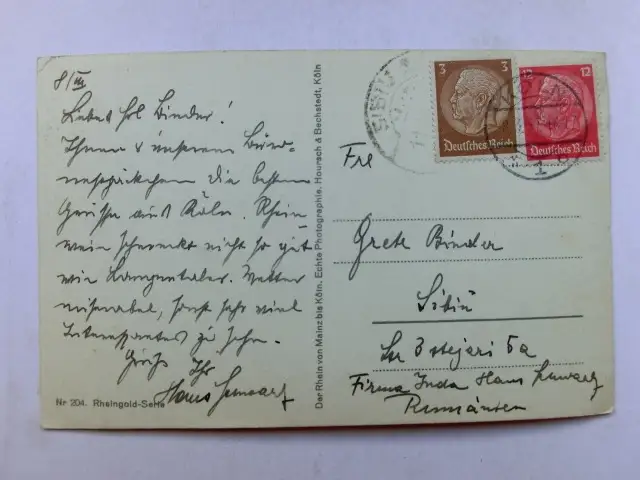 8/III
Liebes Frl Binder!
Ihnen & unserem
die besten
Grüsse aus Köln. Rhein-
wein schmeckt nicht so gut
wie Langentaler. Wetter
miserabel, sonst sehr viel
Interessantes zu sehn.
Grüße Ihr
Hans Schwarz
Nr 204. Rheingold-Serie
Der Rhein von Mainz bis Köln. Echte Photographie. Hoursch & Bechstedt, Köln
SIBIU
3 3
Deutsches Reich
12 12
Deutsches Reich
1
Frl
Grete Binder
Sibiu
Str 3 stejari 5a
Firma Hans Schwarz
Rumänien